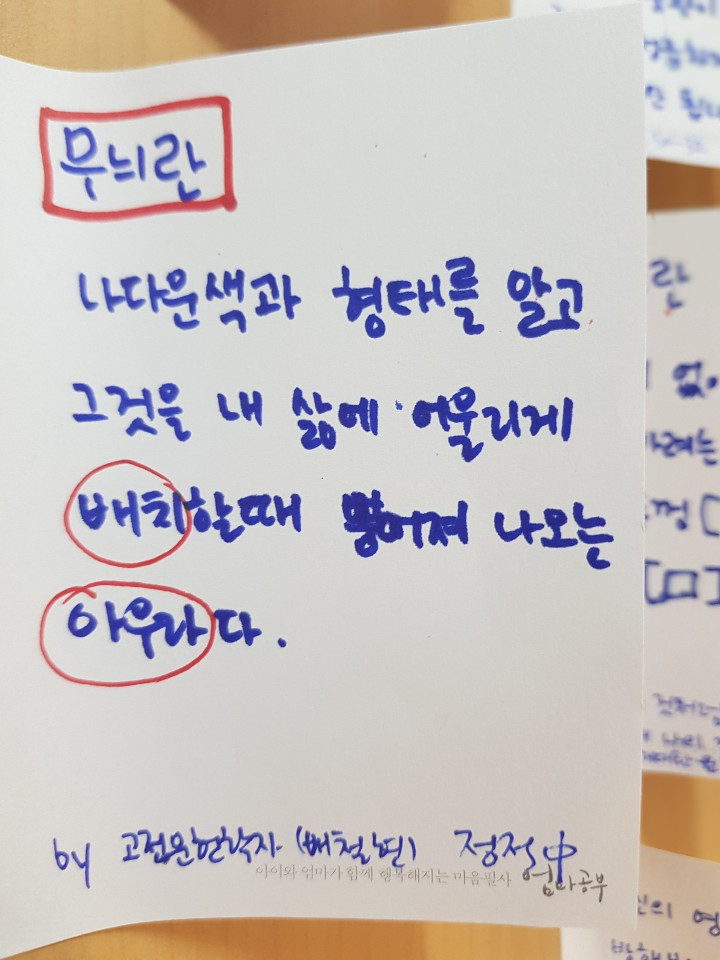 무늬란
나다운색과 형태를 알고
그것을 내 삶에 어울리게
배치할때 뿜어져 나오는
아우라다.
by 고전문헌학자 (배철현) 정적中
아이와 엄마가 함께 행복해지는 마음필사 엄마공부
란
없